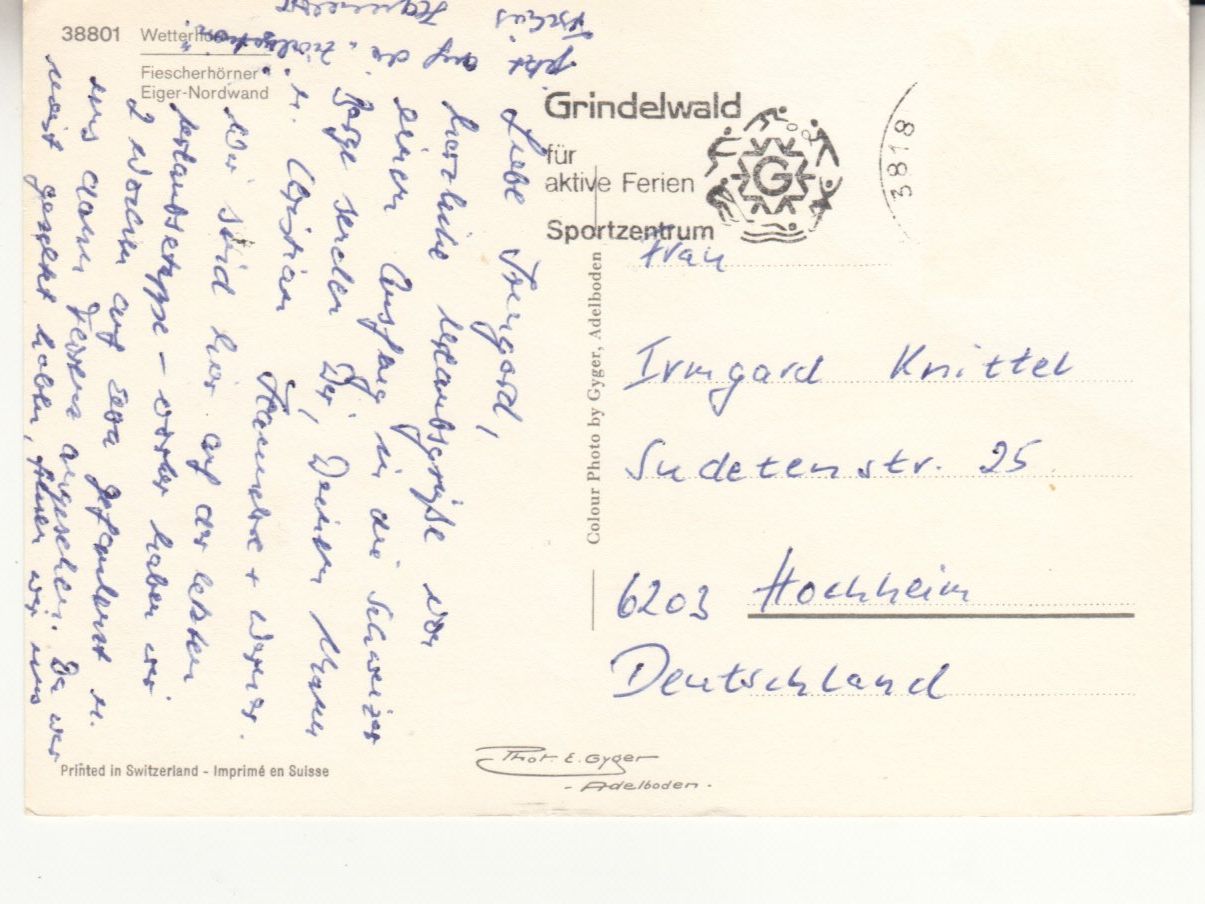 38801 Wetterho
Fiescherhörner
Eiger-Nordwand
Grindelwald
für
aktive Ferien
Sportzentrum
G
3818
Liebe Irmgard,
herzliche Urlaubsgrüße von
einem Ausflug in die Schweizer
Berge senden Dir, Deinem Mann
u. Christian Hannelore + Werner.
Wir sind hier auf der letzten
Urlaubsetappe - vorher haben wir
2 Wochen auf gefaulenzt u.
uns dann angesehen. Da wir
meist gezeltet haben, freuen wir uns
jetzt auf die
Tschüs
Frau
Irmgard Knittel
Sudetenstr. 25
6203 Hochheim
Deutschland
Colour Photo by Gyger, Adelboden
Printed in Switzerland - Imprimé en Suisse
Phot. E. Gyger
- Adelboden.